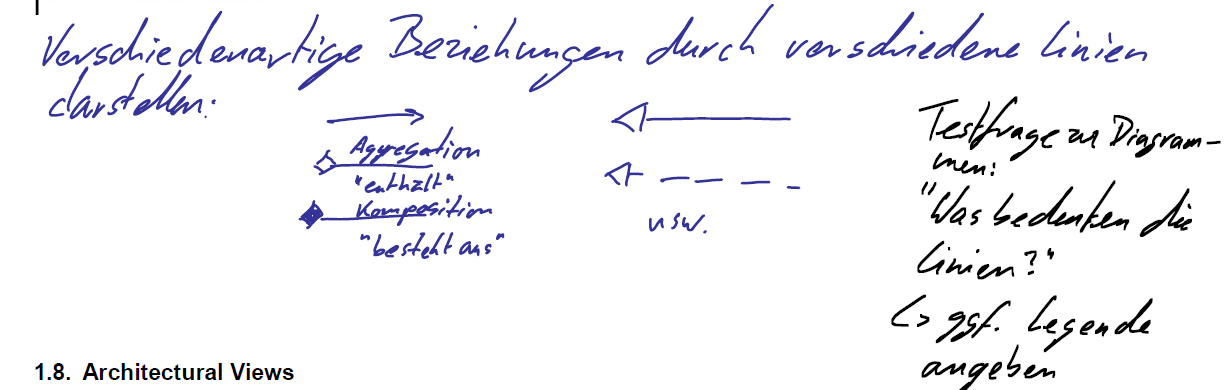 Verschiedenartige Beziehungen durch verschiedene Linien
darstellen:
Aggregation
"enthält"
Komposition
"besteht aus"
usw.
Testfrage zu Diagram-
men:
"Was bedeuten die
Linien?"
↳ ggf. Legende
angeben
1.8. Architectural Views